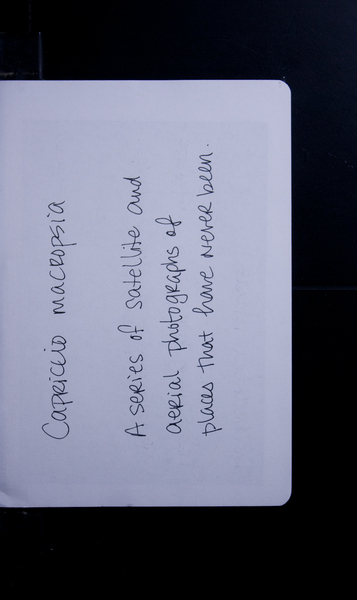 Capriccio macropsia
A series of satellite and
aerial photographs of
places that have never been.